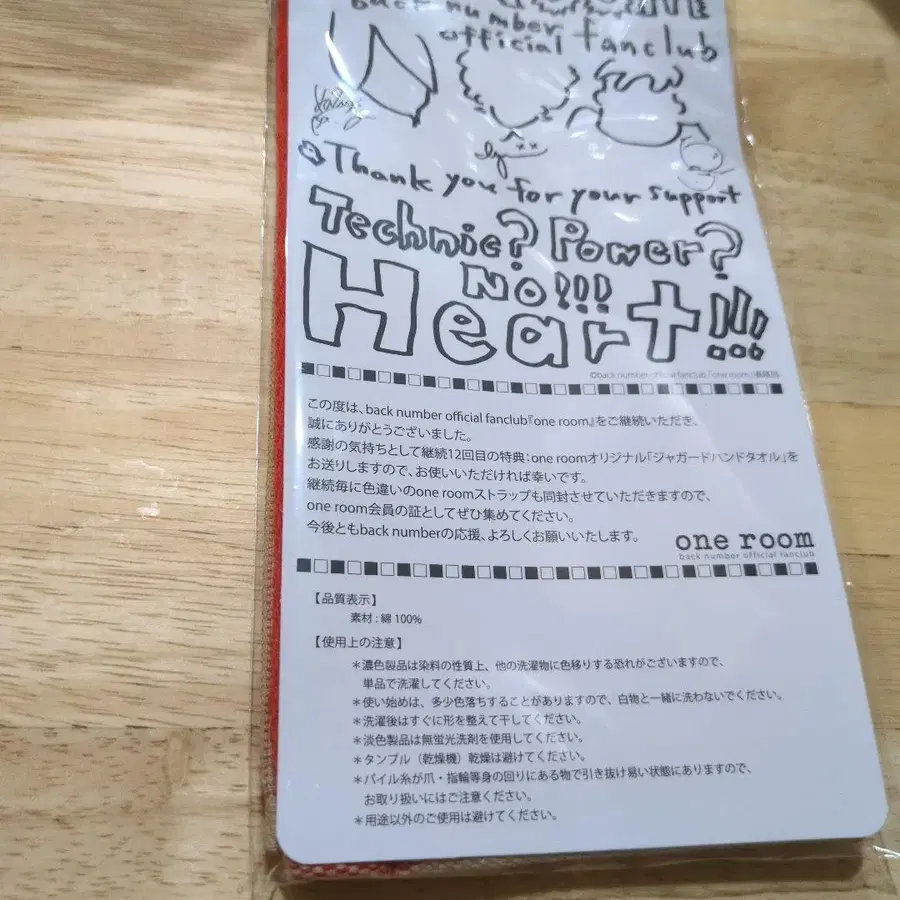 back number
official fanclub
Thank you for your support
Technic? Power?
NO!!!
Heart!!!
©back number official fanclub 「one room」事務局
この度は、back number official fanclub『one room』をご継続いただき、
誠にありがとうございました。
感謝の気持ちとして継続12回目の特典：one roomオリジナル「ジャガードハンドタオル」を
お送りしますので、お使いいただければ幸いです。
継続毎に色違いのone roomストラップも同封させていただきますので、
one room会員の証としてぜひ集めてください。
今後ともback numberの応援、よろしくお願いいたします。
one room
back number official fanclub
【品質表示】
素材 : 綿 100%
【使用上の注意】
＊濃色製品は染料の性質上、他の洗濯物に色移りする恐れがございますので、
単品で洗濯してください。
＊使い始めは、多少色落ちすることがありますので、白物と一緒に洗わないでください。
＊洗濯後はすぐに形を整えて干してください。
＊淡色製品は無蛍光洗剤を使用してください。
＊タンブル（乾燥機）乾燥は避けてください。
＊パイル糸が爪・指輪等身の回りにある物で引き抜け易い状態にありますので、
お取り扱いにはご注意ください。
＊用途以外のご使用は避けてください。